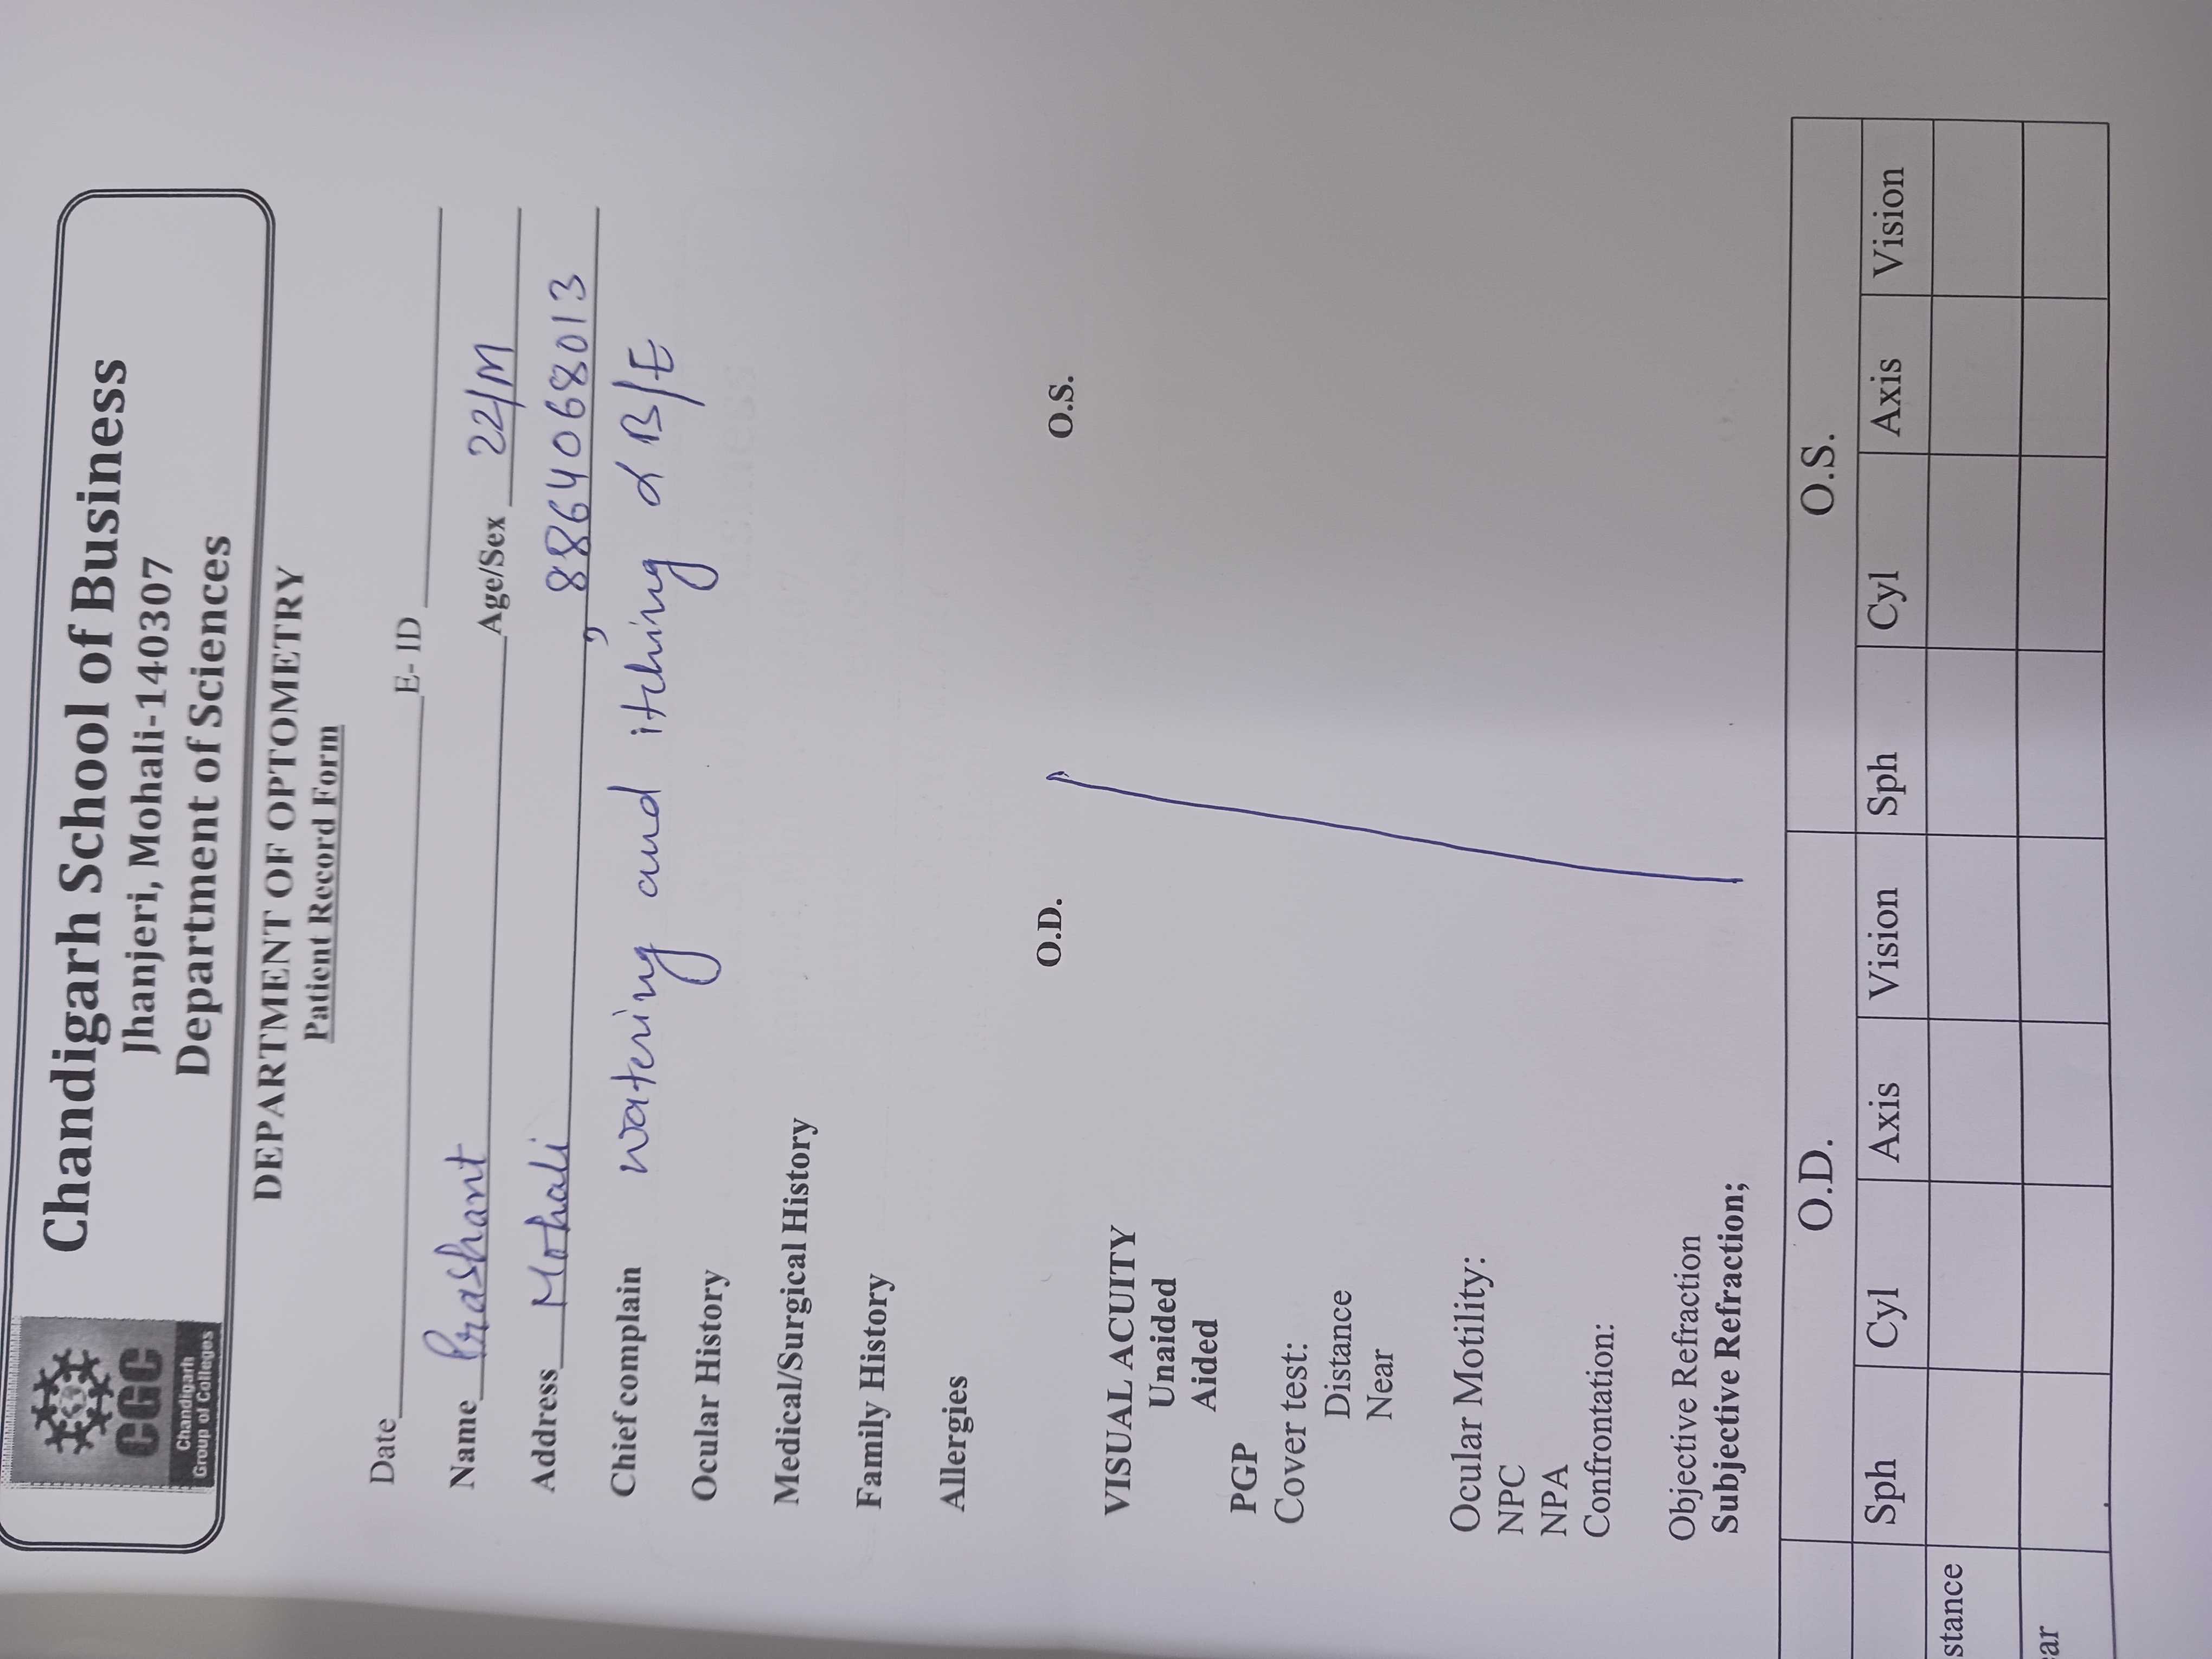 CGC
Chandigarh
Group of Colleges
Chandigarh School of Business
Jhanjeri, Mohali-140307
Department of Sciences
DEPARTMENT OF OPTOMETRY
Patient Record Form
Date E- ID
Name Prashant Age/Sex 22/M
Address Mohali , 8864068013
Chief complain watering and itching B/E
Ocular History
Medical/Surgical History
Family History
Allergies
O.D. O.S.
VISUAL ACUITY
Unaided
Aided
PGP
Cover test:
Distance
Near
Ocular Motility:
NPC
NPA
Confrontation:
Objective Refraction
Subjective Refraction;
O.D. O.S.
Sph Cyl Axis Vision Sph Cyl Axis Vision
stance
ear